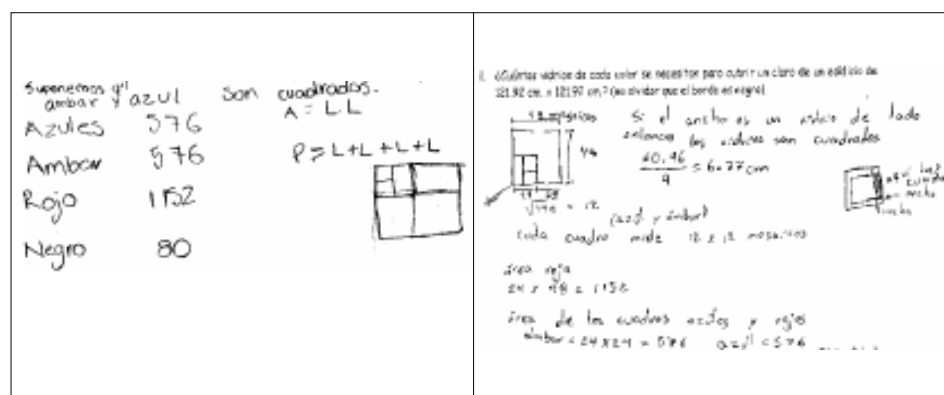 Suponemos q'
ambar y azul son cuadrados.
A = L.L
Azules 576
Ambar 576
P = L+L+L+L
Rojo 1152
Negro 80
1. ¿Cuántos vidrios de cada color se necesitan para cubrir un claro de un edificio de
121.92 cm. x 121.92 cm.? (no olvidar que el borde es negro)
Si el ancho es un de lado
entonces los vidrios son cuadrados
60.96
9
= 6.77 cm
48
= 12
(azul y ámbar)
cada cuadro mide 12 x 12 mosaicos
área roja
24 x 48 = 1152
área de los cuadros azules y rojos
ambar = 24 x 24 = 576 azul = 576